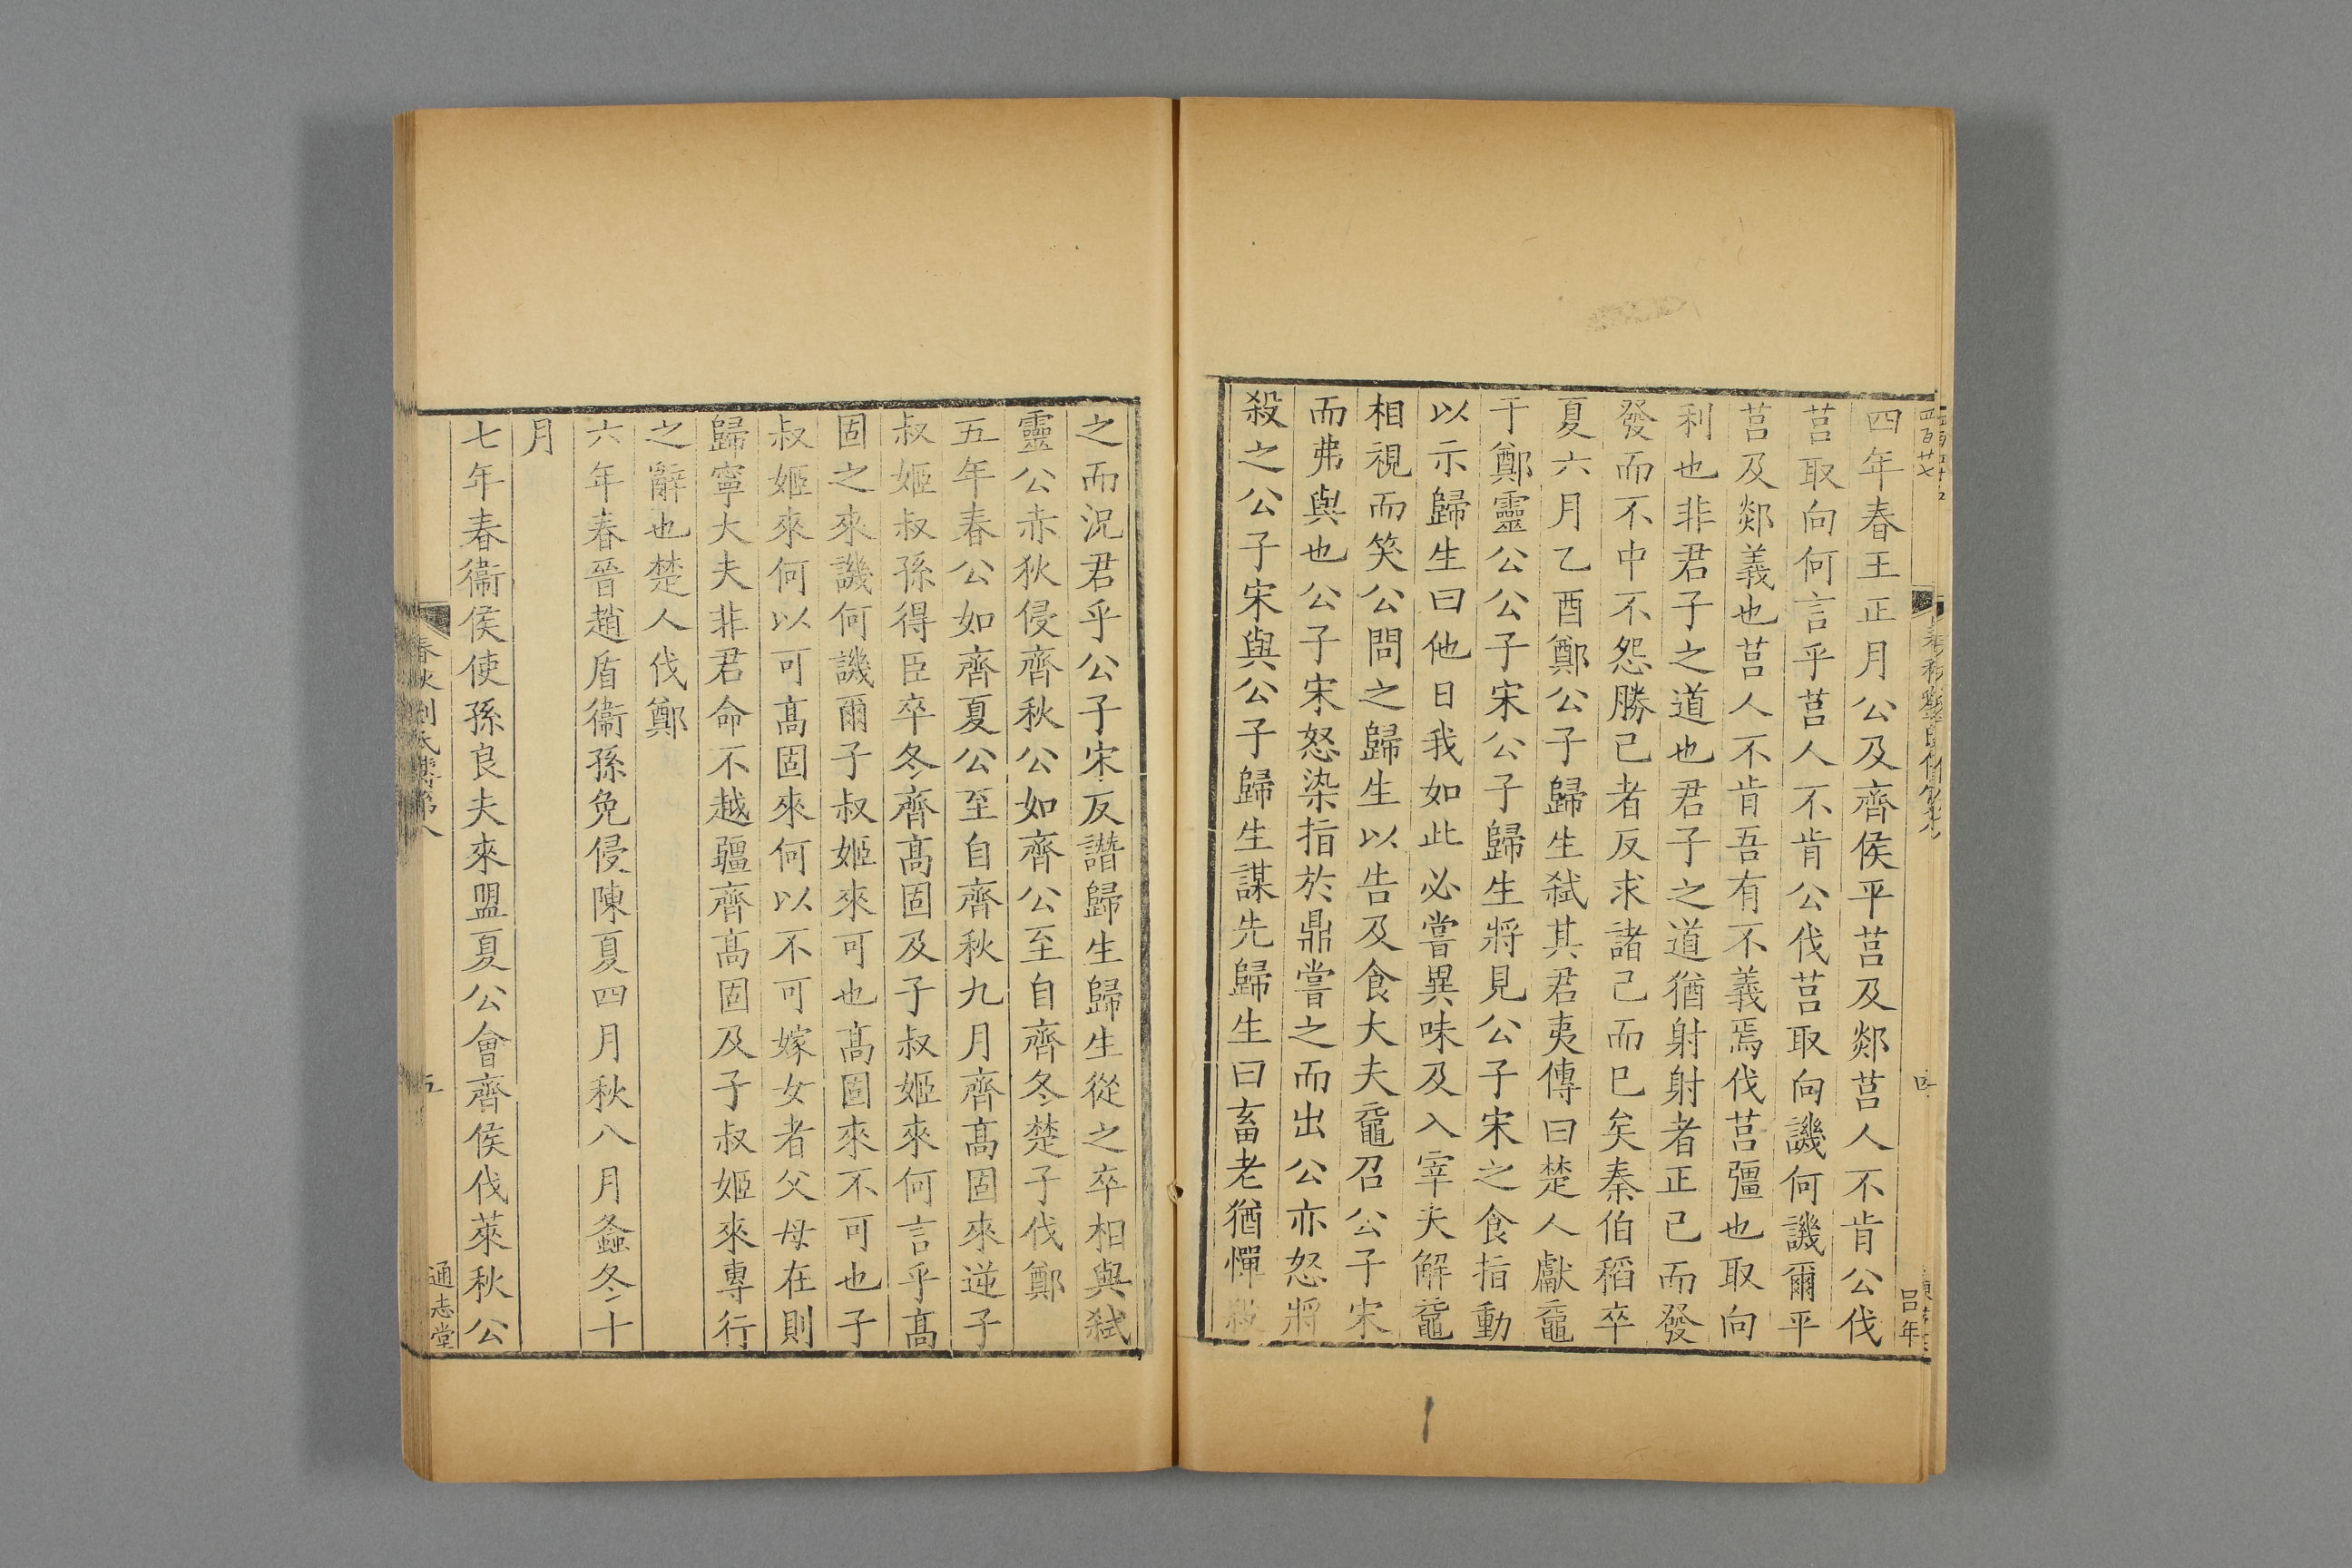 四年春王正月公及齊侯平莒及郯莒人不肯公伐
莒取向何言乎莒人不肯公伐莒取向譏何譏爾平
莒及郯義也莒人不肯吾有不義焉伐莒彊也取向
利也非君子之道也君子之道猶射射者正己而發
發而不中不怨勝己者反求諸己而已矣秦伯稻卒
夏六月乙酉鄭公子歸生弒其君夷傳曰楚人獻黿
于鄭靈公公子宋公子歸生將見公子宋之食指動
以示歸生曰他日我如此必嘗異味及入宰夫解黿
相視而笑公問之歸生以告及食大夫黿召公子宋
而弗與也公子宋怒染指於鼎嘗之而出公亦怒將
殺之公子宋與公子歸生謀先歸生曰畜老猶憚殺
之而況君乎公子宋反譖歸生歸生從之卒相與弒
靈公赤狄侵齊秋公如齊公至自齊冬楚子伐鄭
五年春公如齊夏公至自齊秋九月齊髙固來逆子
叔姬叔孫得臣卒冬齊髙固及子叔姬來何言乎髙
固之來譏何譏爾子叔姬來可也髙固來不可也子
叔姬來何以可髙固來何以不可嫁女者父母在則
歸寧大夫非君命不越疆齊髙固及子叔姬來專行
之辭也楚人伐鄭
六年春晉趙盾衞孫免侵陳夏四月秋八月螽冬十
月
七年春衞侯使孫良夫來盟夏公會齊侯伐萊秋公
春秋劉氏傳第八
五
通志堂